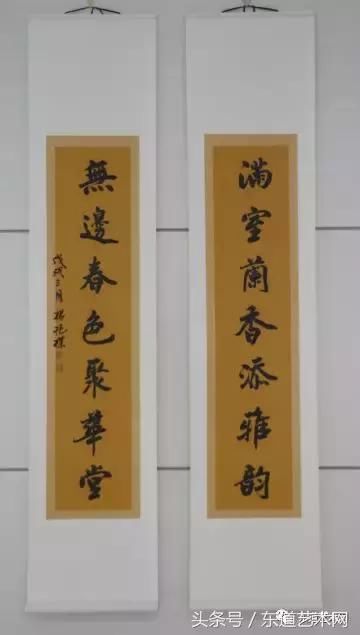 满室蘭香添雅韵
無邊春色聚華堂
戊戌三月
头条号／东道艺术网